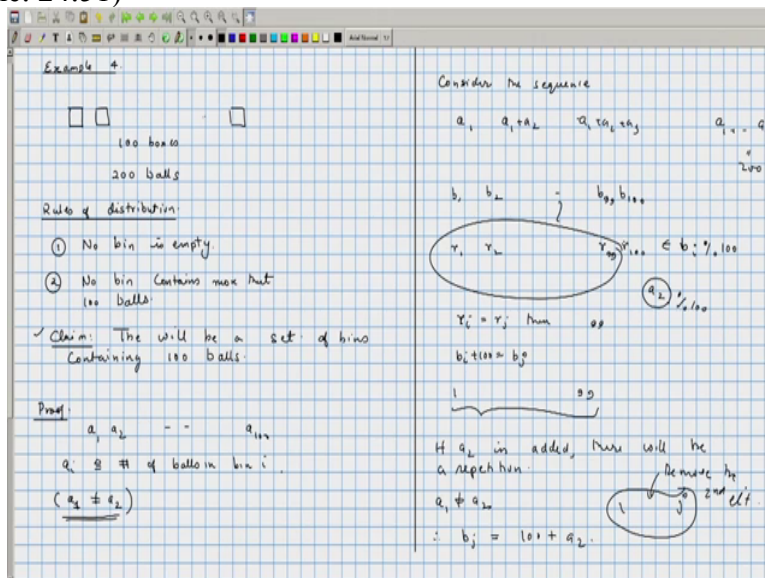 Example 4.
100 boxes
200 balls
Rules of distribution.
① No bin is empty.
② No bin contains more that
100 balls.
✓ Claim: The will be a set of bins
Containing 100 balls.
Proof.
a₁ a₂ - - a₁₀₀
aᵢ # of balls in bin i.
(a₁ ≠ a₂)
Consider the sequence
a₁ a₁+a₂ a₁+a₂+a₃
200
b₁ b₂ - b₉₉ b₁₀₀
r₁ r₂ r₉₉ r₁₀₀ ∈ bᵢ % 100
a₂ % 100
rᵢ = rⱼ then 99
bᵢ+100 = bⱼ
1 99
If a₂ is added, there will be
a repetition.
Remove the
2nd elt.
a₁ ≠ a₂
1 j
∴ bⱼ = 100 + a₂.